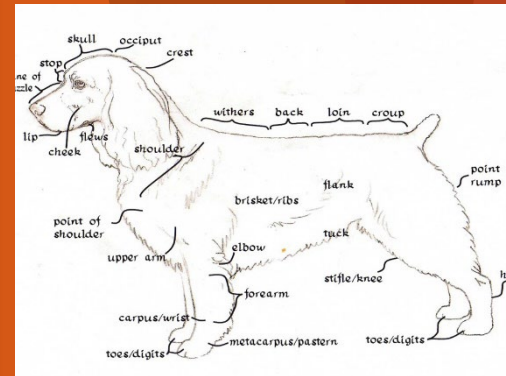 skull
occiput
crest
stop
ne of
zzle
lip
flews
cheek
shoulder
withers
back
loin
croup
point
rump
flank
brisket/ribs
point of
shoulder
upper arm
elbow
tuck
stifle/knee
forearm
carpus/wrist
metacarpus/pastern
toes/digits
toes/digits
h